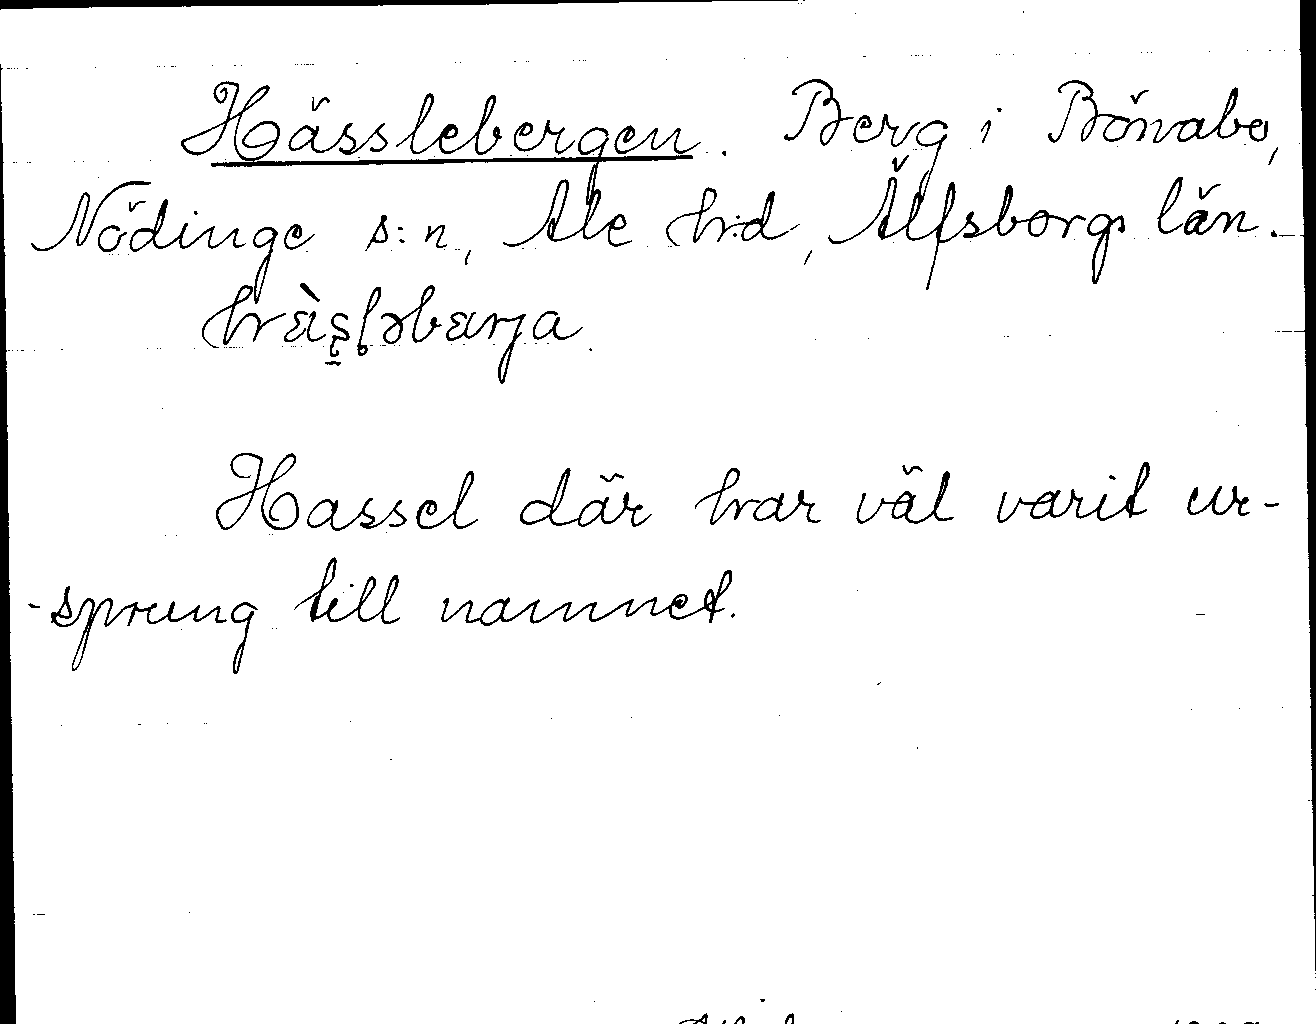 Hässlebergen. Berg i Bönabo,
Nödinge s:n, Ale h:d, Älfsborgs län.
hɛ̀s̢ḷəbɛrja.
Hassel där har väl varit ur-
-sprung till namnet.